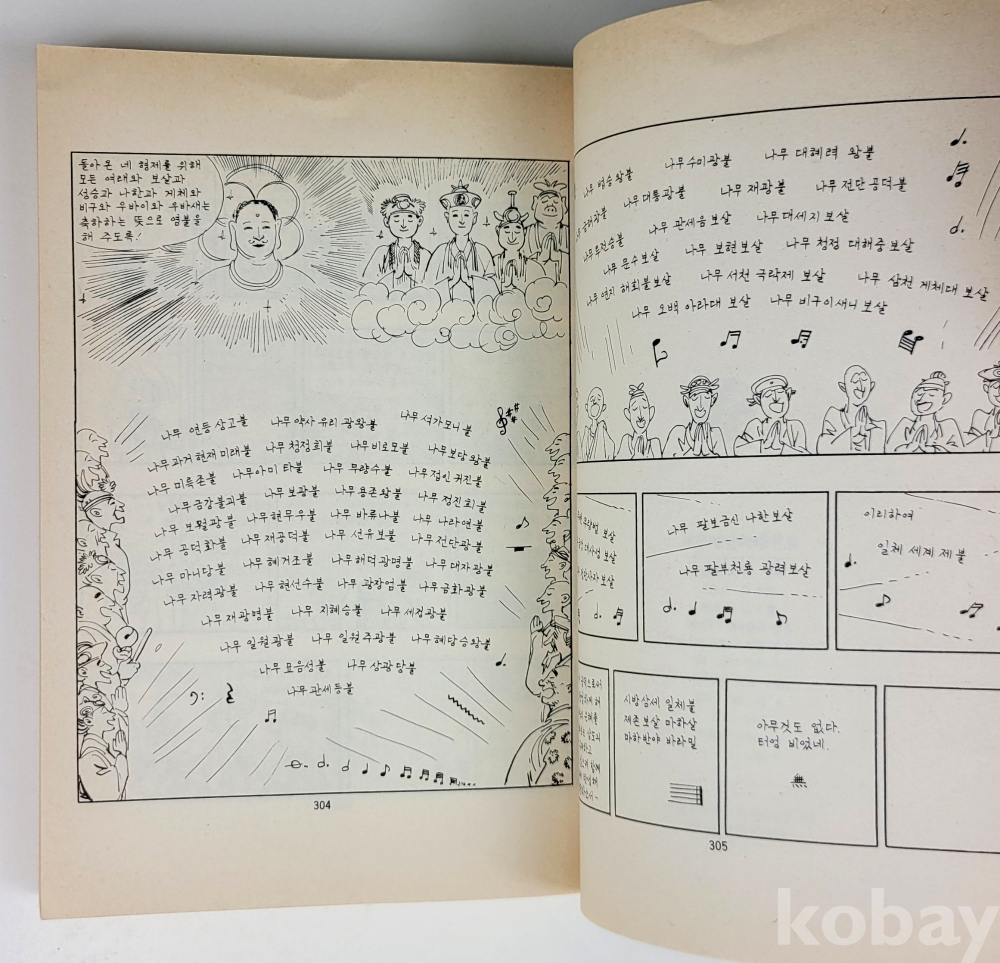 돌아온 네 형제를 위해
모든 여래와 보살과
성승과 나한과 게체와
비구와 우바이와 우바새는
축하하는 뜻으로 염불을
해 주도록!
나무 연등 상고불 나무 약사 유리 광왕불 나무 석가모니불
나무 과거 현재 미래불 나무 청정희불 나무 비로모불 나무 보당 왕불
나무 미륵존불 나무 아미 타불 나무 무량수불 나무 접인 귀진불
나무 금강불괴불 나무 보광불 나무 용존왕불 나무 정진희불
나무 보월광불 나무 현무우불 나무 바류나불 나무 나라연불
나무 공덕화불 나무 재공덕불 나무 선유보불 나무 전단광불
나무 마니당불 나무 혜거조불 나무 해덕광명불 나무 대자광불
나무 자력광불 나무 현선수불 나무 광장엄불 나무 금화광불
나무 재광명불 나무 지혜승불 나무 세정광불
나무 일월광불 나무 일월주광불 나무 혜당승왕불
나무 묘음성불 나무 상광당불
나무 관세등불
304
나무 법승왕불 나무 수미광불 나무 대혜력 왕불
광불 나무 대통광불 나무 재광불 나무 전단 공덕불
나무 관세음 보살 나무 대세지 보살
나무 문수보살 나무 보현보살 나무 청정 대해중 보살
나무 연지 해회불보살 나무 서천 극락제 보살 나무 삼천 게체대 보살
나무 오백 아라대 보살 나무 비구이새니 보살
보살
보살
보살
나무 팔보금신 나한 보살
나무 팔부천룡 광력보살
이리하여
일체 세계 제불
시방삼세 일체불
제존보살 마하살
마하반야 바라밀
아무것도 없다.
터엉 비었네.
305
kobay